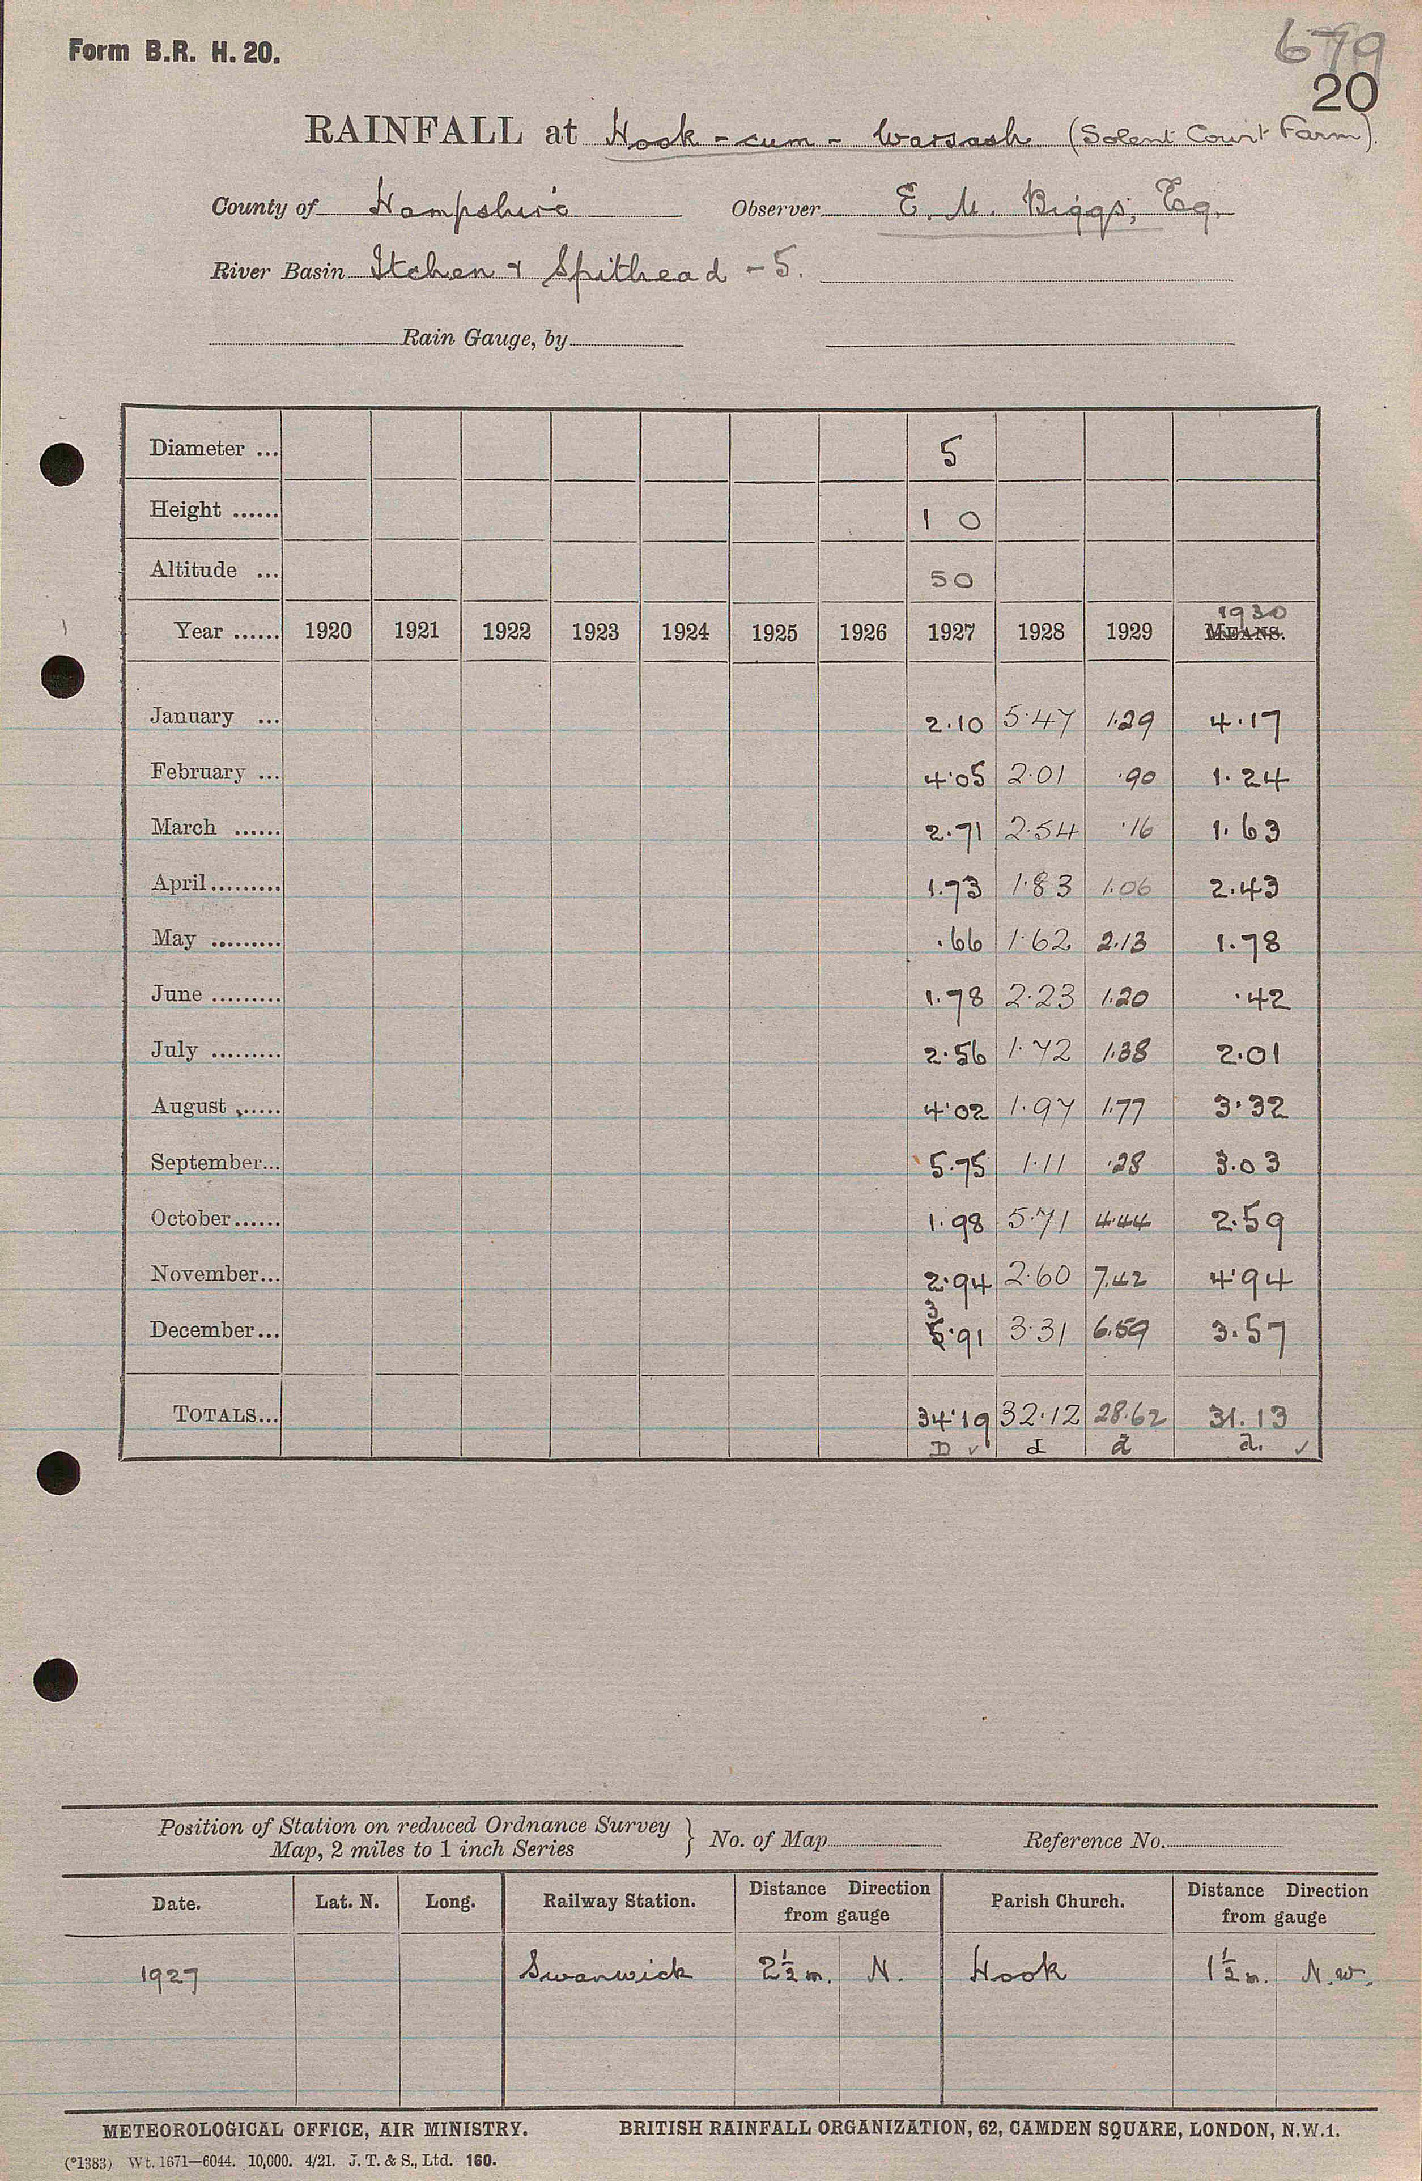 Form B.R. H. 20.
679
20
RAINFALL at Hook-cum-Warsash (Solent Court Farm).
County of Hampshire Observer E. M. Biggs, Esq.
River Basin Itchen & Spithead - 5.
Rain Gauge, by
Diameter ... 5
Height ...... 1 0
Altitude ... 50
Year ...... 1920 1921 1922 1923 1924 1925 1926 1927 1928 1929 1930 MEANS.
January ... 2.10 5.47 1.29 4.17
February ... 4.05 2.01 .90 1.24
March ...... 2.71 2.54 .16 1.63
April ......... 1.73 1.83 1.06 2.43
May ......... .66 1.62 2.13 1.78
June ......... 1.78 2.23 1.20 .42
July ......... 2.56 1.72 1.38 2.01
August ...... 4.02 1.97 1.77 3.32
September... 5.75 1.11 .28 3.03
October...... 1.98 5.71 4.44 2.59
November... 2.94 2.60 7.42 4.94
3
December... 5.91 3.31 6.59 3.57
TOTALS... 34.19 32.12 28.62 31.13
D ✓ d d d. ✓
Position of Station on reduced Ordnance Survey
Map, 2 miles to 1 inch Series } No. of Map Reference No.
Date. Lat. N. Long. Railway Station. Distance Direction from gauge Parish Church. Distance Direction from gauge
1927 Swanwick 2½ m. N. Hook 1½ m. N.W.
METEOROLOGICAL OFFICE, AIR MINISTRY. BRITISH RAINFALL ORGANIZATION, 62, CAMDEN SQUARE, LONDON, N.W.1.
(*1383) Wt. 1671—6044. 10,000. 4/21. J. T. & S., Ltd. 160.